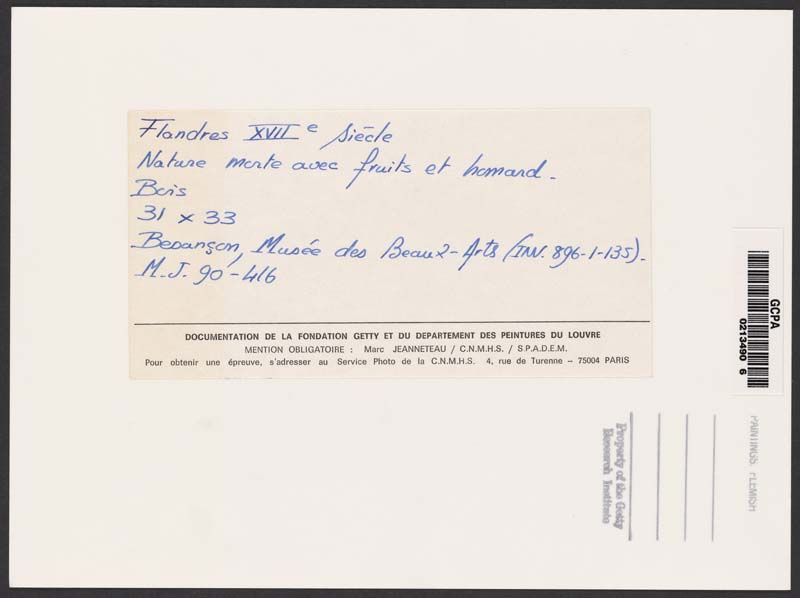 Flandres XVII e siècle
Nature morte avec fruits et homard.
Bois
31 x 33
Besançon, Musée des Beaux-Arts (INV. 896-1-135).
M.J. 90-416
DOCUMENTATION DE LA FONDATION GETTY ET DU DEPARTEMENT DES PEINTURES DU LOUVRE
MENTION OBLIGATOIRE : Marc JEANNETEAU / C.N.M.H.S. / S.P.A.D.E.M.
Pour obtenir une épreuve, s'adresser au Service Photo de la C.N.M.H.S. 4, rue de Turenne – 75004 PARIS
GCPA
0213490 6
PAINTINGS, FLEMISH
Property of the Getty
Research Institute